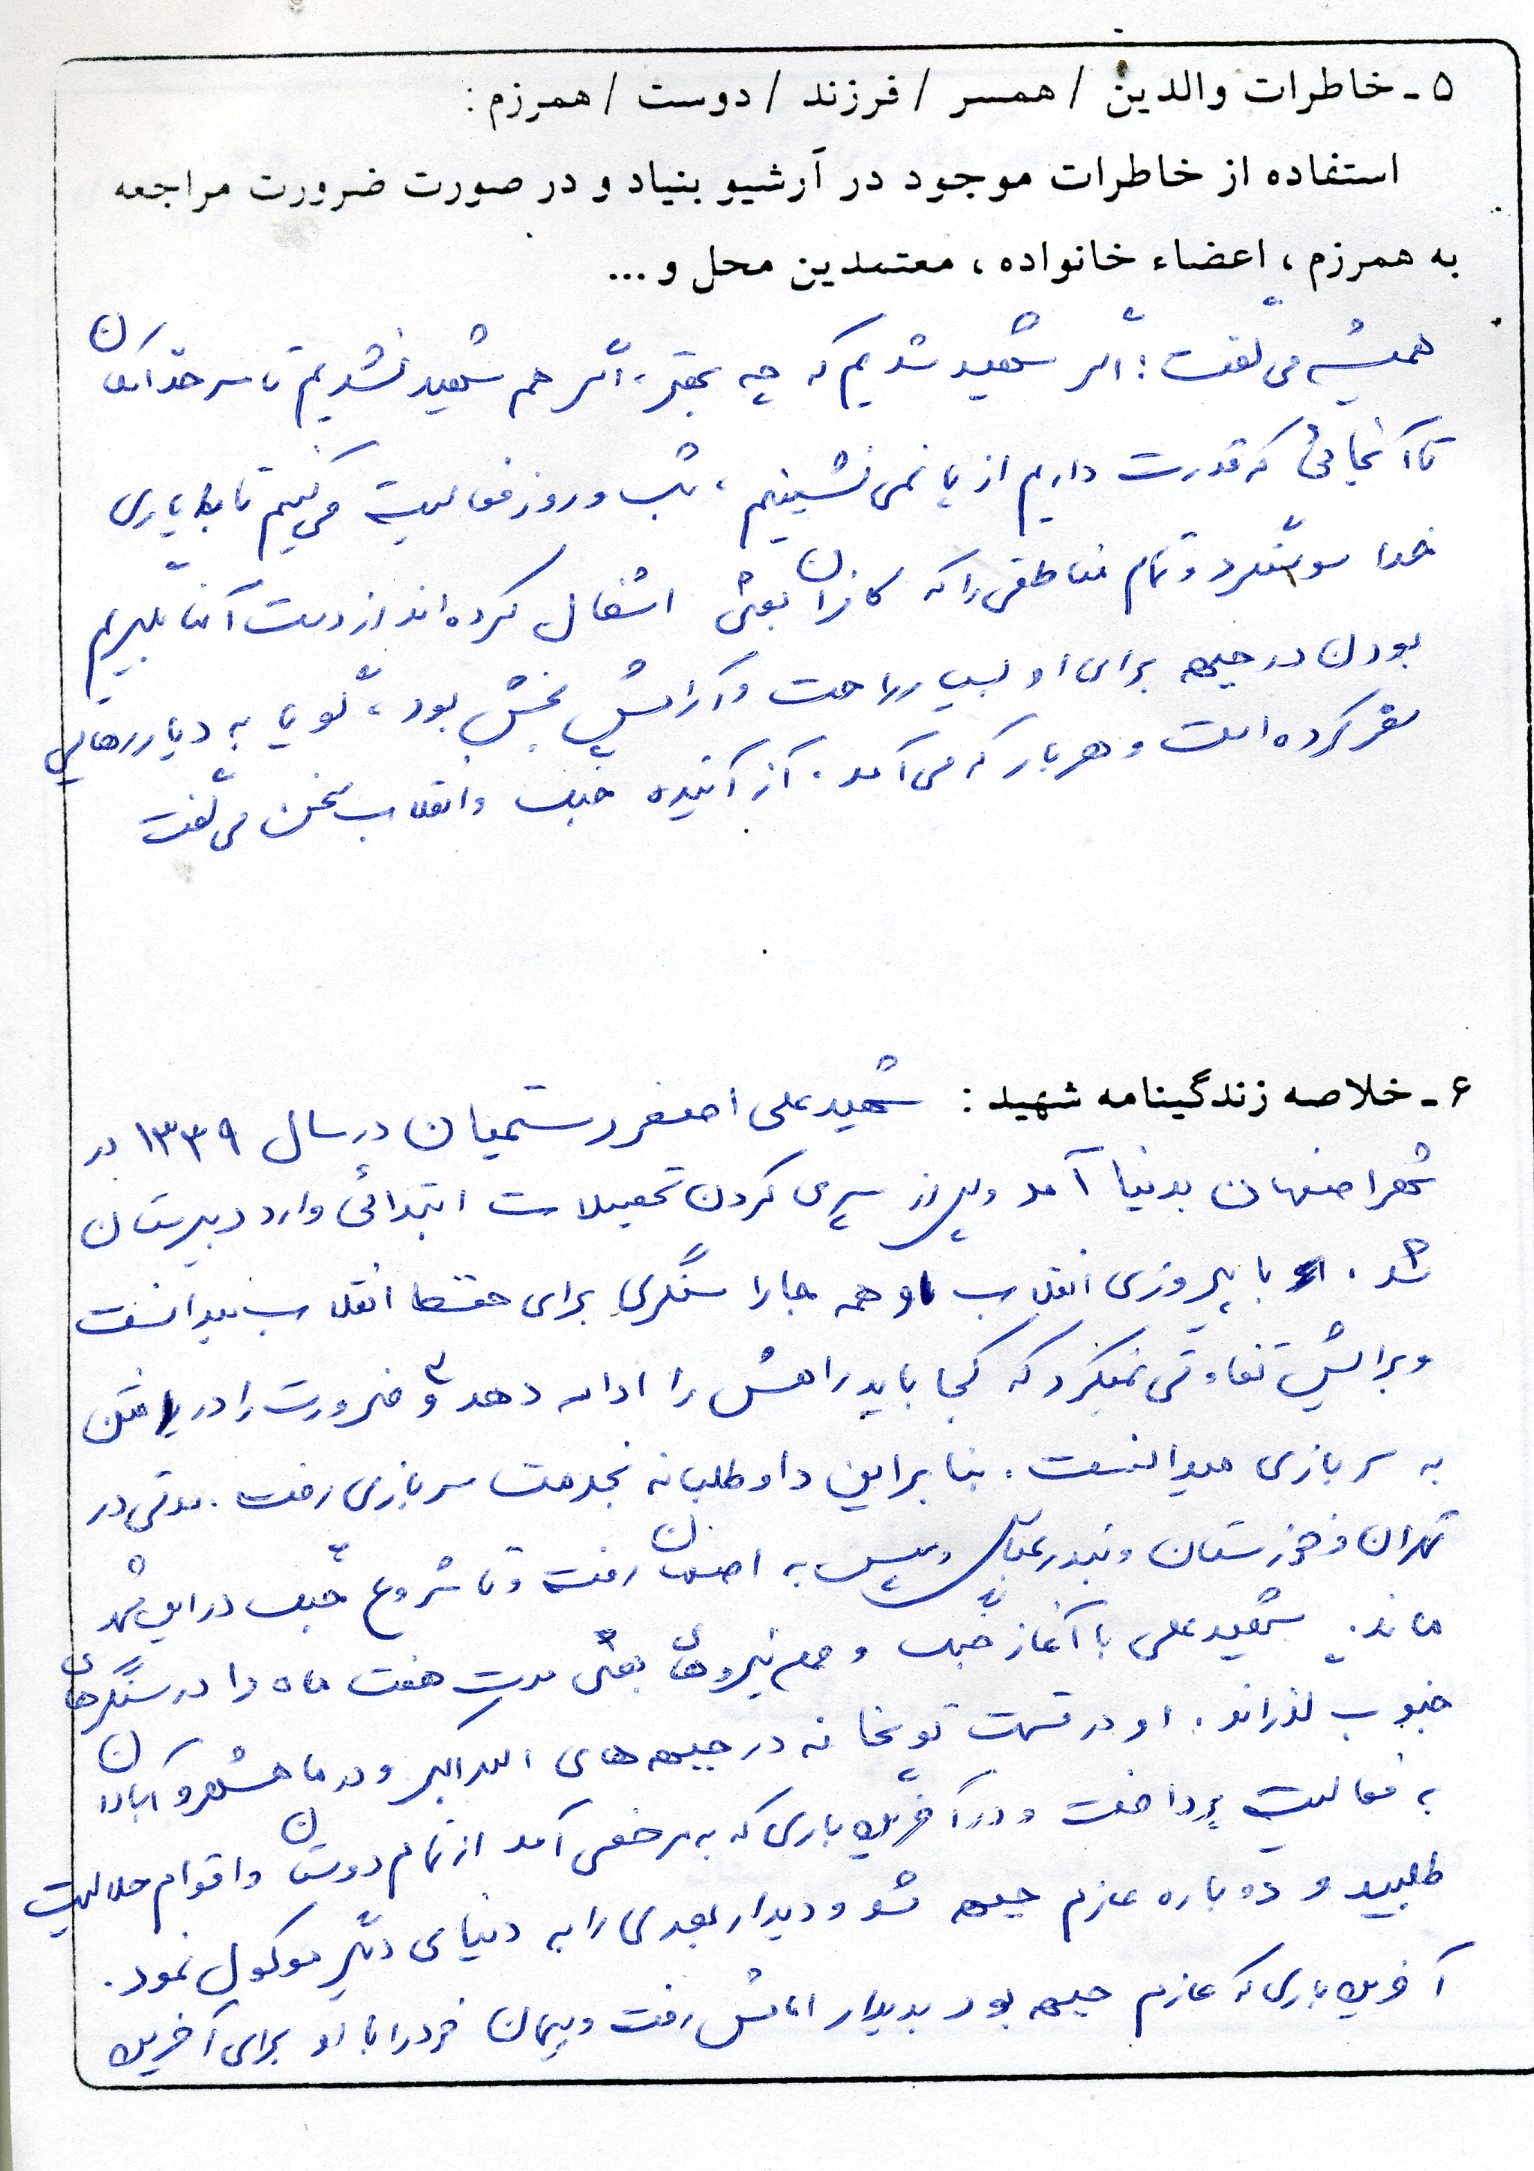 ۵ - خاطرات والدین / همسر / فرزند / دوست / همرزم :
استفاده از خاطرات موجود در آرشیو بنیاد و در صورت ضرورت مراجعه
به همرزم ، اعضاء خانواده ، معتمدین محل و ...
همیشه می گفت : اگر شهید شدیم که چه بهتر . اگر هم شهید نشدیم تا سر حد امکان
تا آنجائی که قدرت داریم از پا نمی نشینیم ، شب و روز فعالیت می کنیم تا با یاری
خدا و تمام مناطقی را که کافران بعثی اشغال کرده اند از دست آنها بگیریم
بودن در جبهه برای او بسیار راحت و آرامش بخش بود ، گویا به دیار رهایی
سفر کرده است و هر بار که می آمد . از آینده جنگ و انقلاب سخن می گفت
۶ - خلاصه زندگینامه شهید : شهید علی اصغر رستمیان در سال ۱۳۳۹ در
شهر اصفهان بدنیا آمد و پس از سپری کردن تحصیلات ابتدائی وارد دبیرستان
شد . با پیروزی انقلاب او همه جا را سنگری برای حفظ انقلاب میدانست
و برایش تفاوتی نمیکرد که کجا باید راهش را ادامه دهد و ضرورت را در رفتن
به سربازی میدانست . بنابراین داوطلبانه بخدمت سربازی رفت . مدتی در
تهران و خوزستان و بندرعباس و سپس به اصفهان رفت و تا شروع جنگ در این شهر
ماند . شهید علی با آغاز جنگ و نیروهای بعثی مدت هفت ماه را در سنگرهای
جنوب گذراند . او در قسمت توپخانه در جبهه های الله اکبر و در ماهشهر و آبادان
به فعالیت پرداخت و در آخرین باری که به مرخصی آمد از تمام دوستان و اقوام حلالیت
طلبید و دوباره عازم جبهه شد و دیدار بعدی را به دنیای دیگر موکول نمود .
آخرین باری که عازم جبهه بود بدیدار امامش رفت و پیمان خود را با او برای آخرین